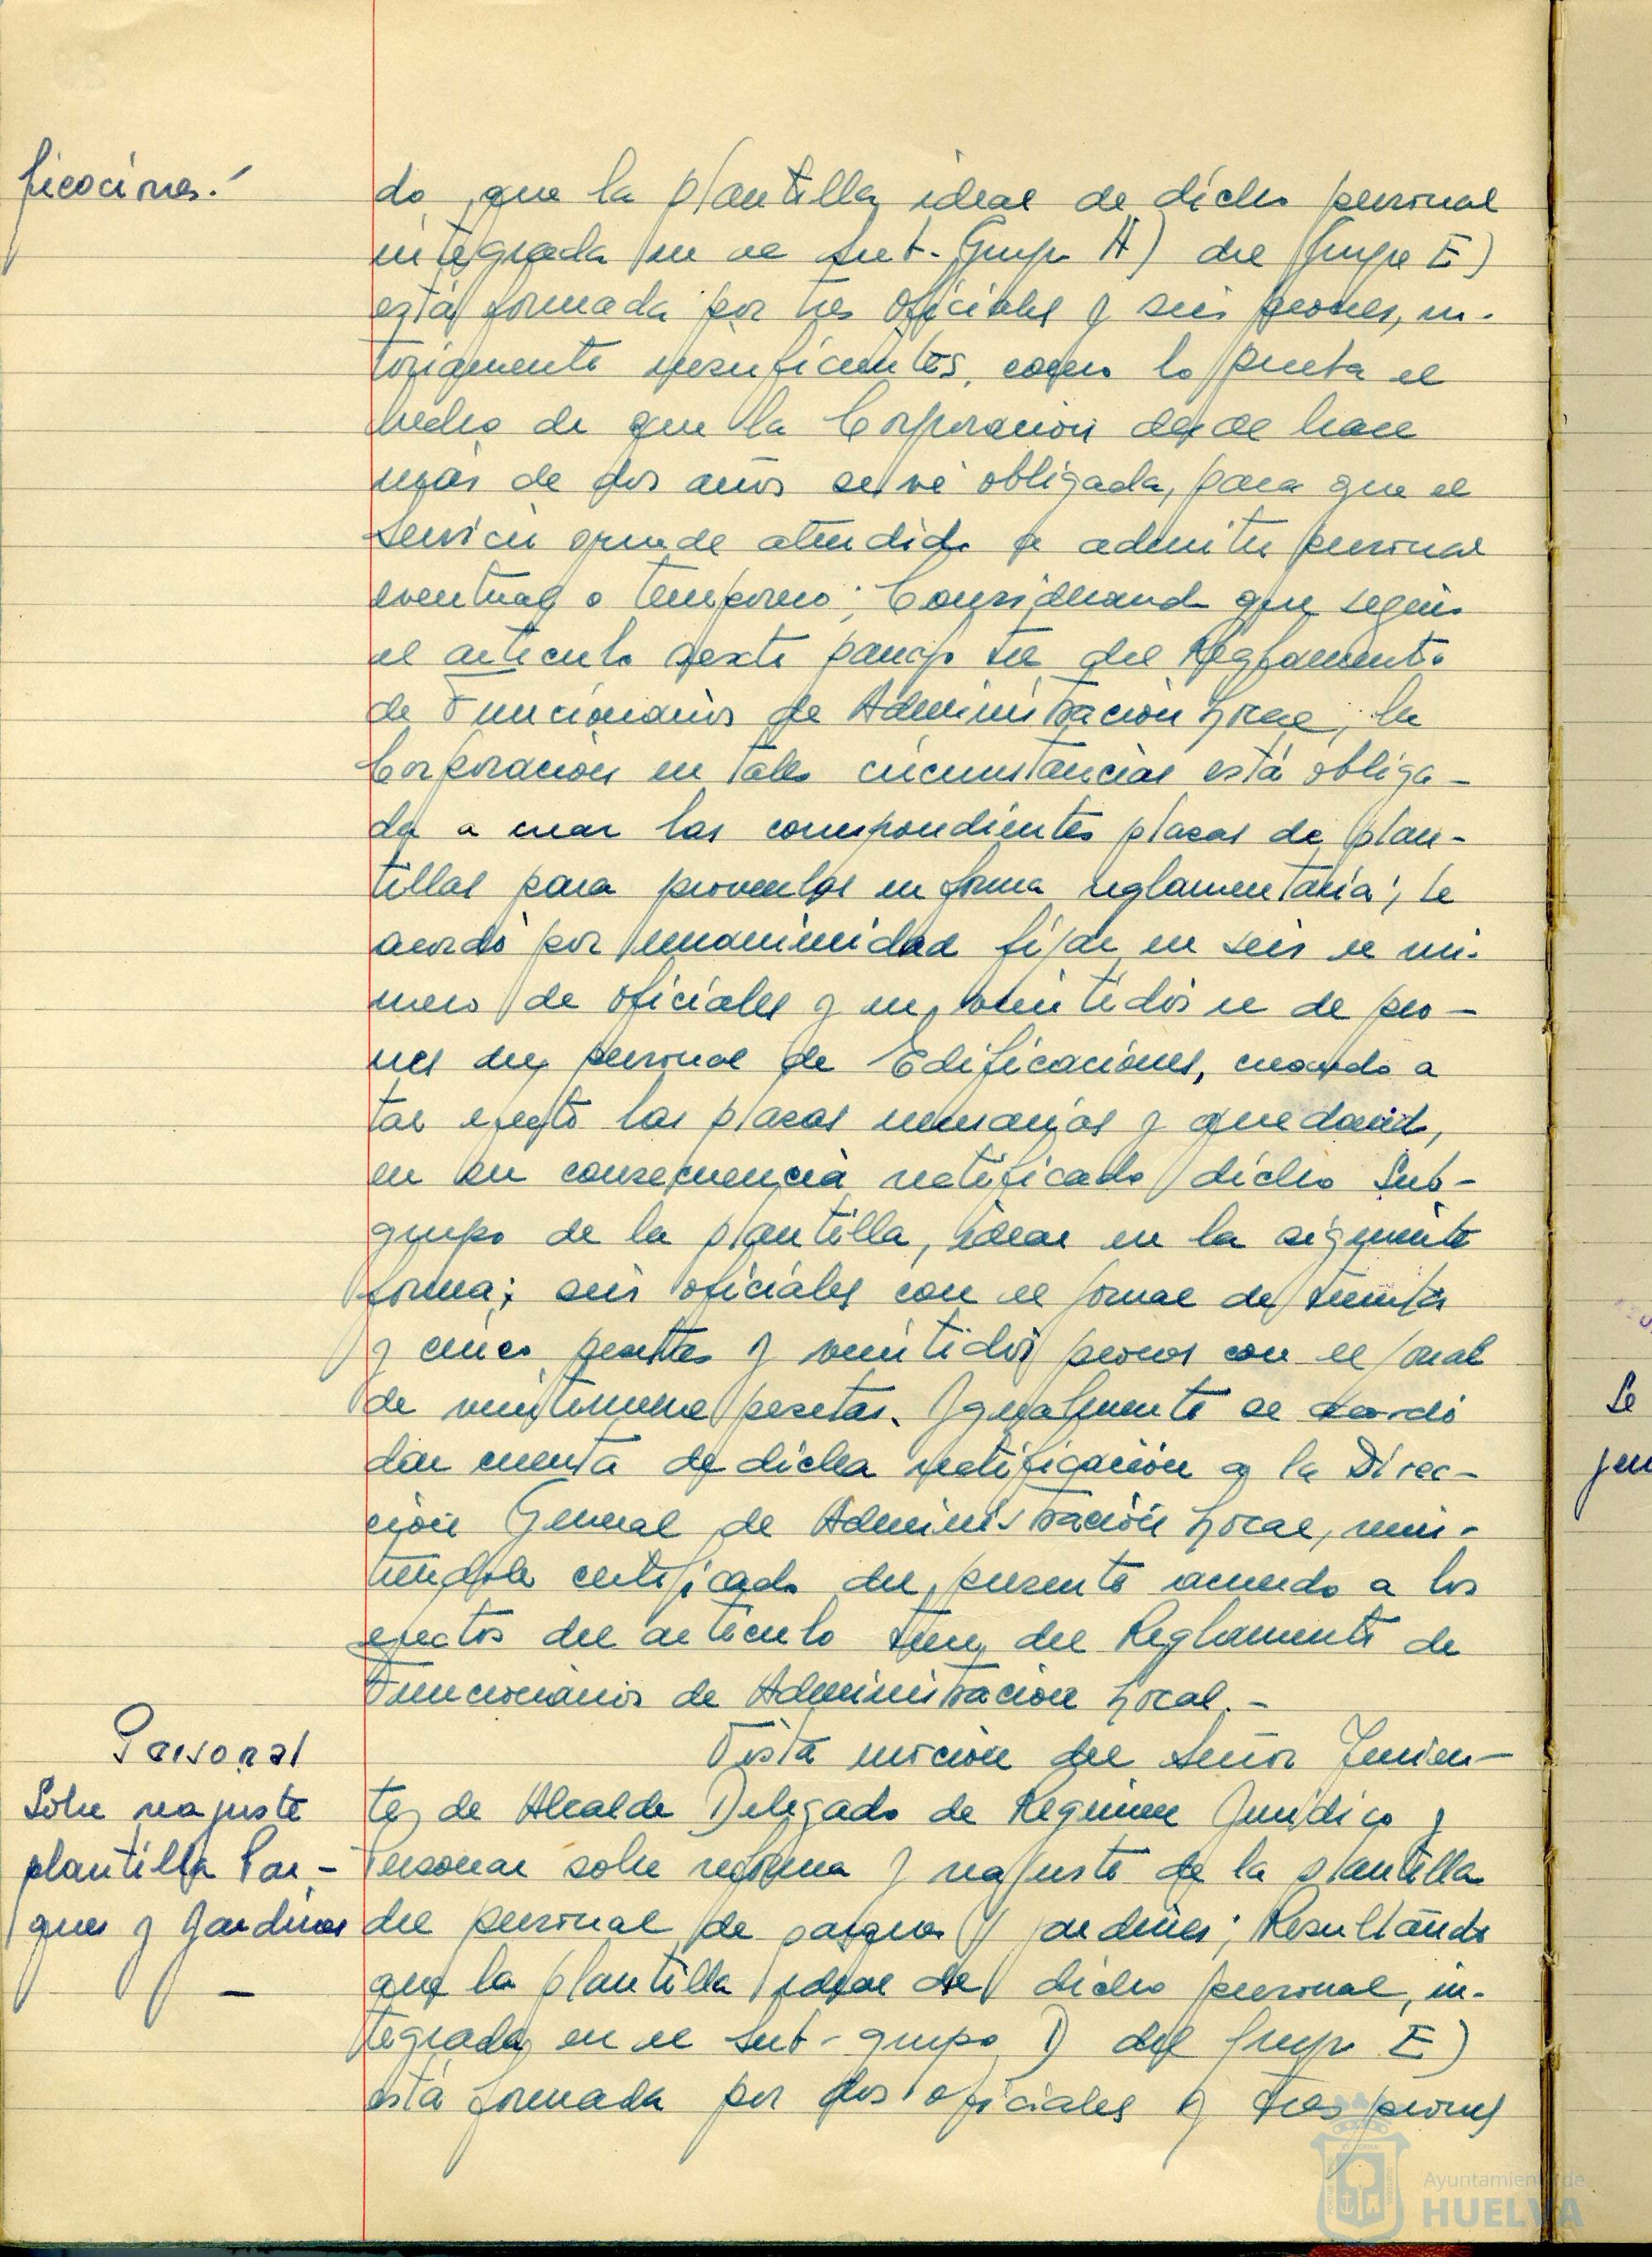 ficaciones.-
do que la plantilla ideal de dicho personal
integrada en el Sub-Grupo A) del Grupo E)
está formada por tres oficiales y seis peones, no-
toriamente insuficientes, como lo prueba el
hecho de que la Corporación desde hace
mas de dos años se vé obligada, para que el
servicio quede atendido a admitir personal
eventual o temporero; Considerando que según
el artículo sexto párrafo tres del Reglamento
de Funcionarios de Administración Local, la
Corporación en tales circunstancias está obliga-
da a crear las correspondientes plazas de plan-
tillas para proveerlas en forma reglamentaria; se
acordó por unanimidad fijar en seis el nú-
mero de oficiales y en veintidós el de peo-
nes del personal de Edificaciones, creando a
tal efecto las plazas necesarias y quedando,
en su consecuencia rectificado dicho Sub-
grupo de la plantilla ideal en la siguiente
forma; seis oficiales con el jornal de treinta
y cinco pesetas y veintidós peones con el jornal
de veintinueve pesetas. Igualmente se acordó
dar cuenta de dicha rectificación a la Direc-
ción General de Administración Local, remi-
tiéndole certificado del presente acuerdo a los
efectos del artículo trece del Reglamento de
Funcionarios de Administración Local.-
Personal
Sobre reajuste
plantilla Par-
ques y Jardines
-
Vista moción del Señor Tenien-
te de Alcalde Delegado de Régimen Jurídico y
Personal sobre reforma y reajuste de la plantilla
del personal de parques y jardines; Resultando
que la plantilla ideal de dicho personal, in-
tegrada en el Sub-grupo D) del Grupo E)
está formada por dos oficiales y tres peones
Se
Ayuntamiento de
HUELVA